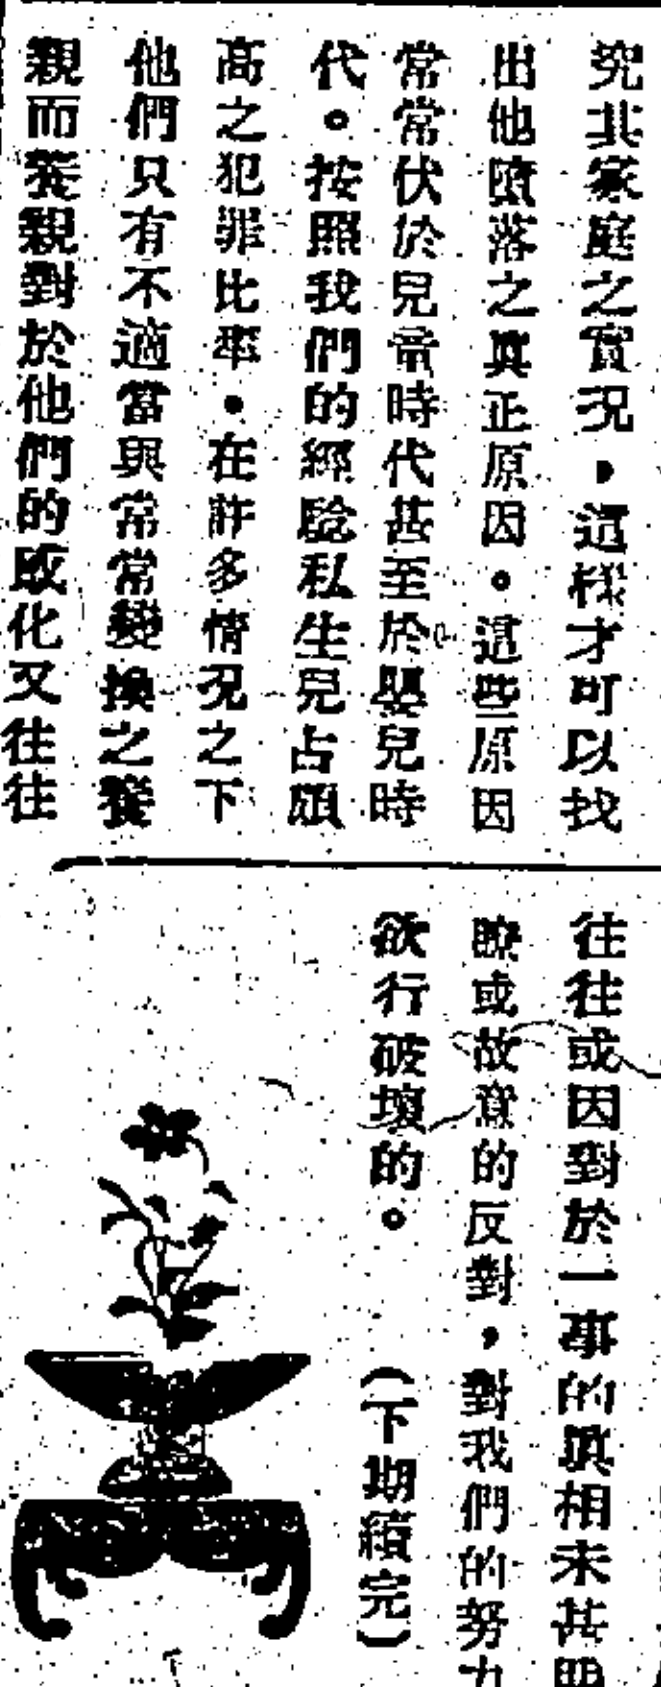 究其家庭之實况，這樣才可以找
出他墮落之眞正原因。這些原因
常常伏於兒童時代甚至於嬰兒時
代。按照我們的經驗私生兒占頗
高之犯罪比率。在許多情况之下
他們只有不適當與常常變換之養
親而養親對於他們的敎化又往往
往往或因對於一事的眞相未甚明
瞭或故意的反對，對我們的努力
欲行破壞的。
（下期續完）